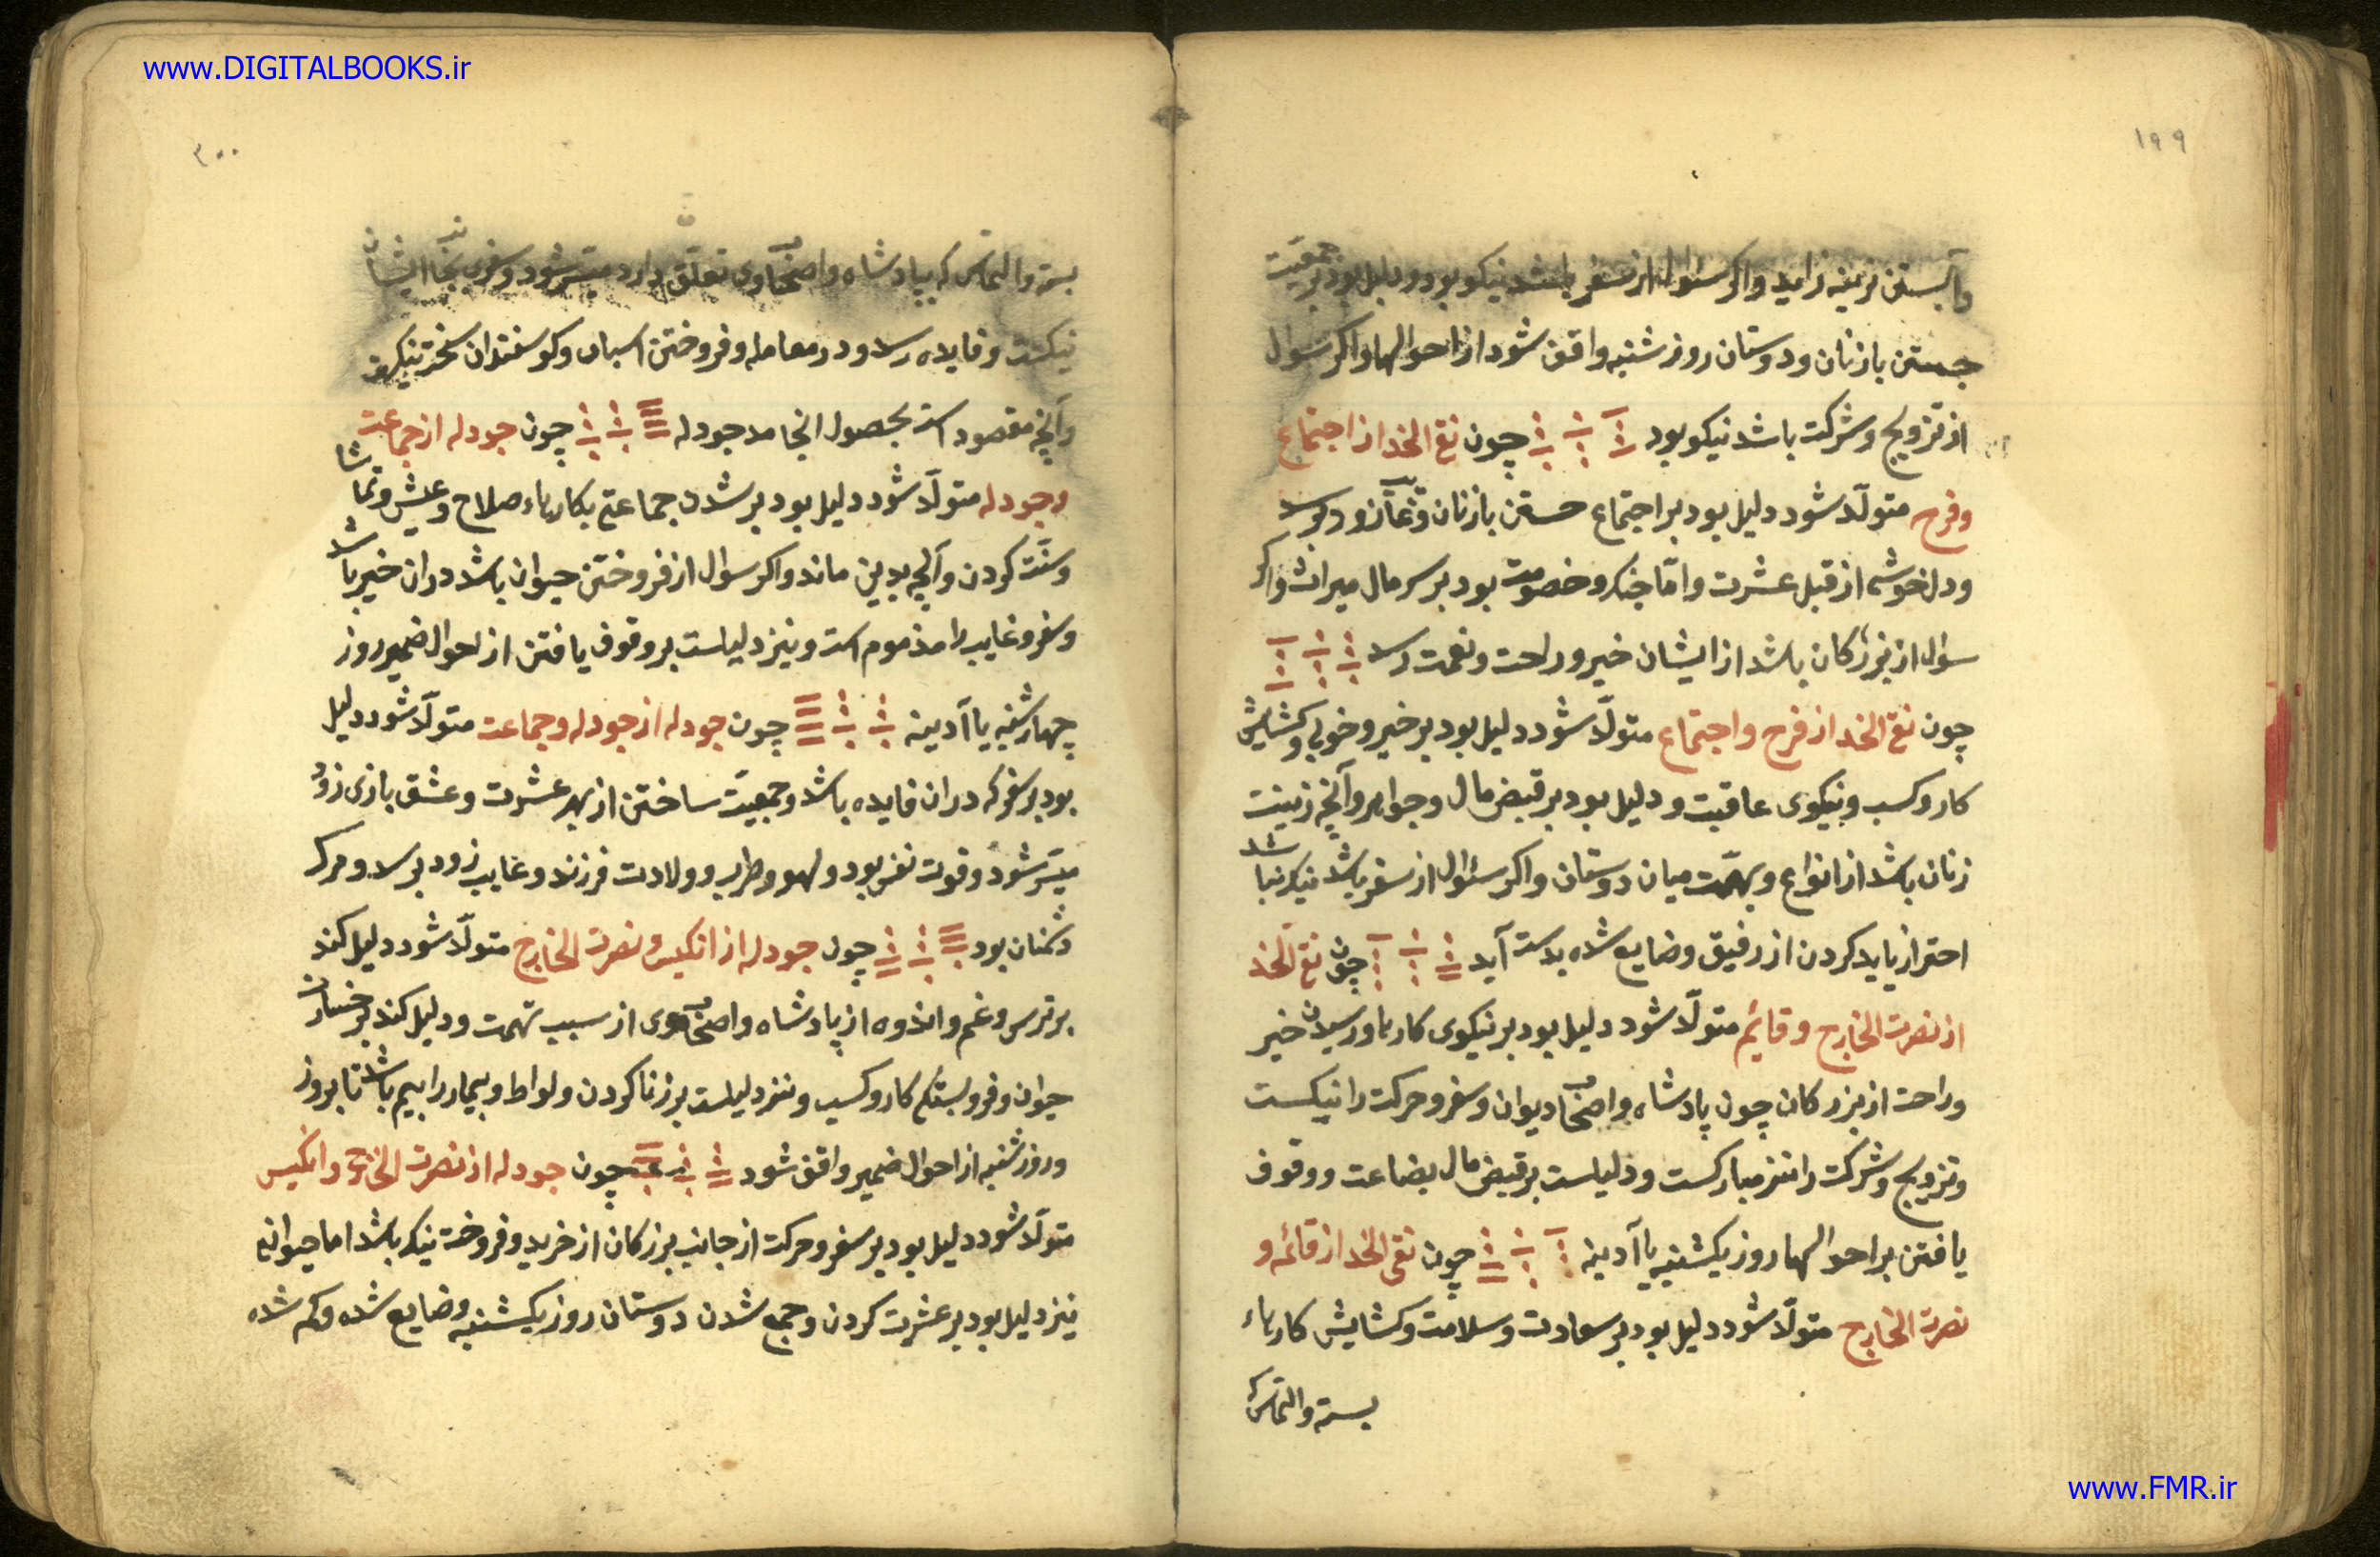 www.DIGITALBOOKS.ir
۱۹۹
آبستن نرینه زاید و اکر سئوال از سفر باشد نیکو بود و دلیل بود بر جمعیت
جستن با زنان و دوستان روز شنبه واقف شود از احوالها و اکر سوال
از تزویج و شرکت باشد نیکو بود چون نقی الخد از اجتماع
و فرح متولّد شود دلیل بود بر اجتماع جستن با زنان و زود برسد
و دلخوشی از قبل عشرت و امّا جنک و خصومت بود بر سر مال میراث و اکر
سؤال از بزرکان باشد از ایشان خیر و راحت و نعمت رسد
چون نقی الخد از فرح و اجتماع متولّد شود دلیل بود بر خیر و خوبی و کشایش
کار و کسب و نیکوی عاقبت و دلیل بود بر قبض مال و جواهر و آنچه زینت
زنان باشد از انواع و بهمّت میان دوستان و اکر سئوال از سفر باشد نیک نباشد
احتراز باید کردن از رفیق و ضایع شده بدست آید چون نقی الخد
از نصرت الخارج و قائم متولّد شود دلیل بود بر نیکوی کارها و رسیدن خیر
و راحت از بزرکان چون پادشاه و اصحاب دیوان و سفر و حرکت را نیکست
و تزویج و شرکت را نیز مبارکست و دلیلست بر قبض مال بضاعت و وقوف
یافتن بر احوالها روز یکشنبه یا آدینه چون نقی الخد از قائمه و
نصرت الخارج متولّد شود دلیل بود بر سعادت و سلامت و کشایش کارهاء
بسته و التماس که
۲۰۰
بسته و التماس که بپادشاه و اصحاب وی تعلّق دارد میسّر شود و سفر بجانب ایشان
نیکست و فایده رسد و در معامله و فروختن اسبان و کوسفندان سخت نیکو
و آنچه مقصود است بحصول انجامد جودله چون جودله از جماعت
و جودله متولّد شود دلیل بود بر شدن جماعتی بکارهاء صلاح و عیش و تماشا
و سنّت کردن و آنچه بدین ماند و اکر سوال از فروختن حیوان باشد دران خیر باشد
و سفر و غایب را مذموم است و نیز دلیلست بر وقوف یافتن از احوال ضمیر روز
چهارشنبه یا آدینه چون جودله از جودله و جماعت متولّد شود دلیل
بود بر سفر که دران فایده باشد و جمعیّت ساختن از بهر عشرت و عشق بازی زود
میسّر شود و قوت نفس بود و لهو و طرب و ولادت فرزند و غایب زود برسد و مرک
دشمنان بود چون جودله از انکیس و نصرت الخارج متولّد شود دلیل کند
بر ترس و غم و اندوه از پادشاه و اصحاب وی از سبب تهمت و دلیل کند بر خسارت
حیوان و فروبستکی کار و کسب و نیز دلیلست بر زنا کردن و لواط و بیمار را بیم باشد تا بروز
و روز شنبه از احوال ضمیر واقف شود چون جودله از نصرت الخارج و انکیس
متولّد شود دلیل بود بر سفر و حرکت از جانب بزرکان از خرید و فروخت نیک باشد اما حیوانی
نیز دلیل بود بر عشرت کردن و جمع شدن دوستان روز یکشنبه و ضایع شده و کم شده
www.FMR.ir